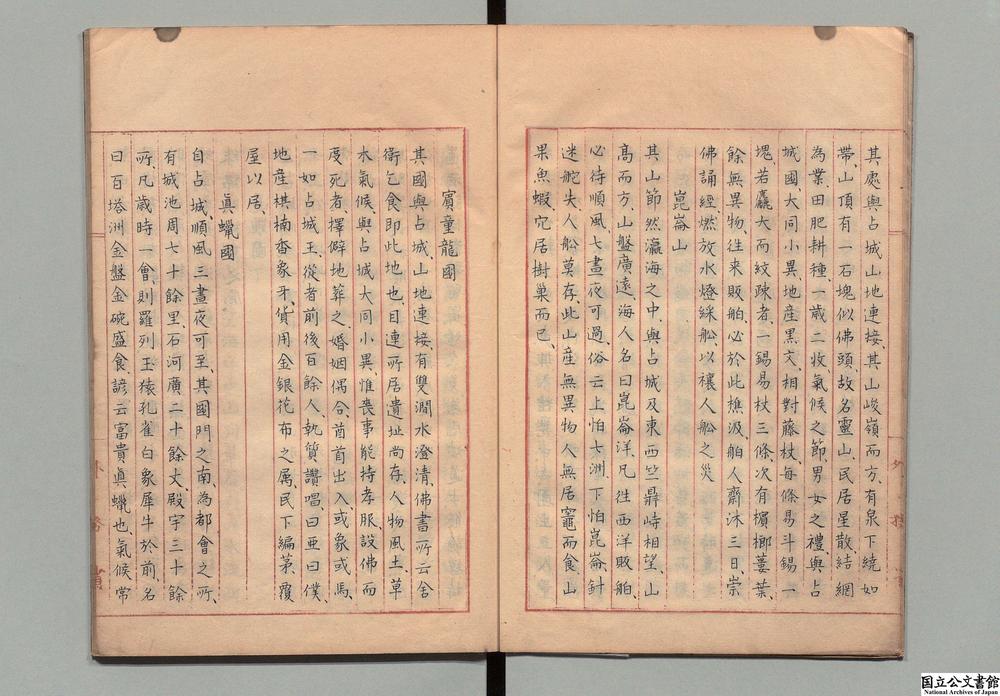 其處與占城山地連接、其山峻嶺而方、有泉下繞如
帶、山頂有一石塊似佛頭、故名靈山、民居星散、結網
為業、田肥耕種一歲二收、氣候之節、男女之禮、與占
城國、大同小異、地産黑文、相對藤杖、每條易斗錫一
塊、若麄大而紋疎者、一錫易杖三條、次有檳榔蔞葉、
餘無異物、往來販舶、必於此樵汲、舶人齋沐三日、崇
佛誦經、燃放水燈綵舩、以禳人舩之災
崑崙山
其山節然瀛海之中、與占城及東西竺鼎峙相望、山
高而方、山盤廣遠、海人名曰崑崙洋、凡往西洋販舶、
必待順風、七晝夜可過、俗云上怕七洲、下怕崑崙、針
迷舵失、人舩莫存、此山産無異物、人無居竈、而食、山
果魚蝦、穴居樹巢而已、
賓童龍國
其國與占城、山地連接、有雙澗水澄清、佛書所云舍
衛乞食、即此地也、目連所居遺址尚存、人物風土草
木氣候、與占城大同小異、惟喪事能持孝服、設佛而
度死者、擇僻地葬之、婚姻偶合、酋首出入、或象或馬、
一如占城王、從者前後百餘人、執質讚唱、曰亜曰僕、
地産棋楠香象牙、貨用金銀花布之属、民下編茅、覆
屋以居、
眞蠟國
自占城、順風三晝夜可至、其國門之南、為都會之所、
有城池周七十餘里、石河廣二十餘丈、殿宇三十餘
所、凡歳時一會、則羅列玉猿孔雀白象犀牛於前、名
曰百塔洲、金盤金碗盛食、諺云富貴眞蠟也、氣候常
国立公文書館
National Archives of Japan